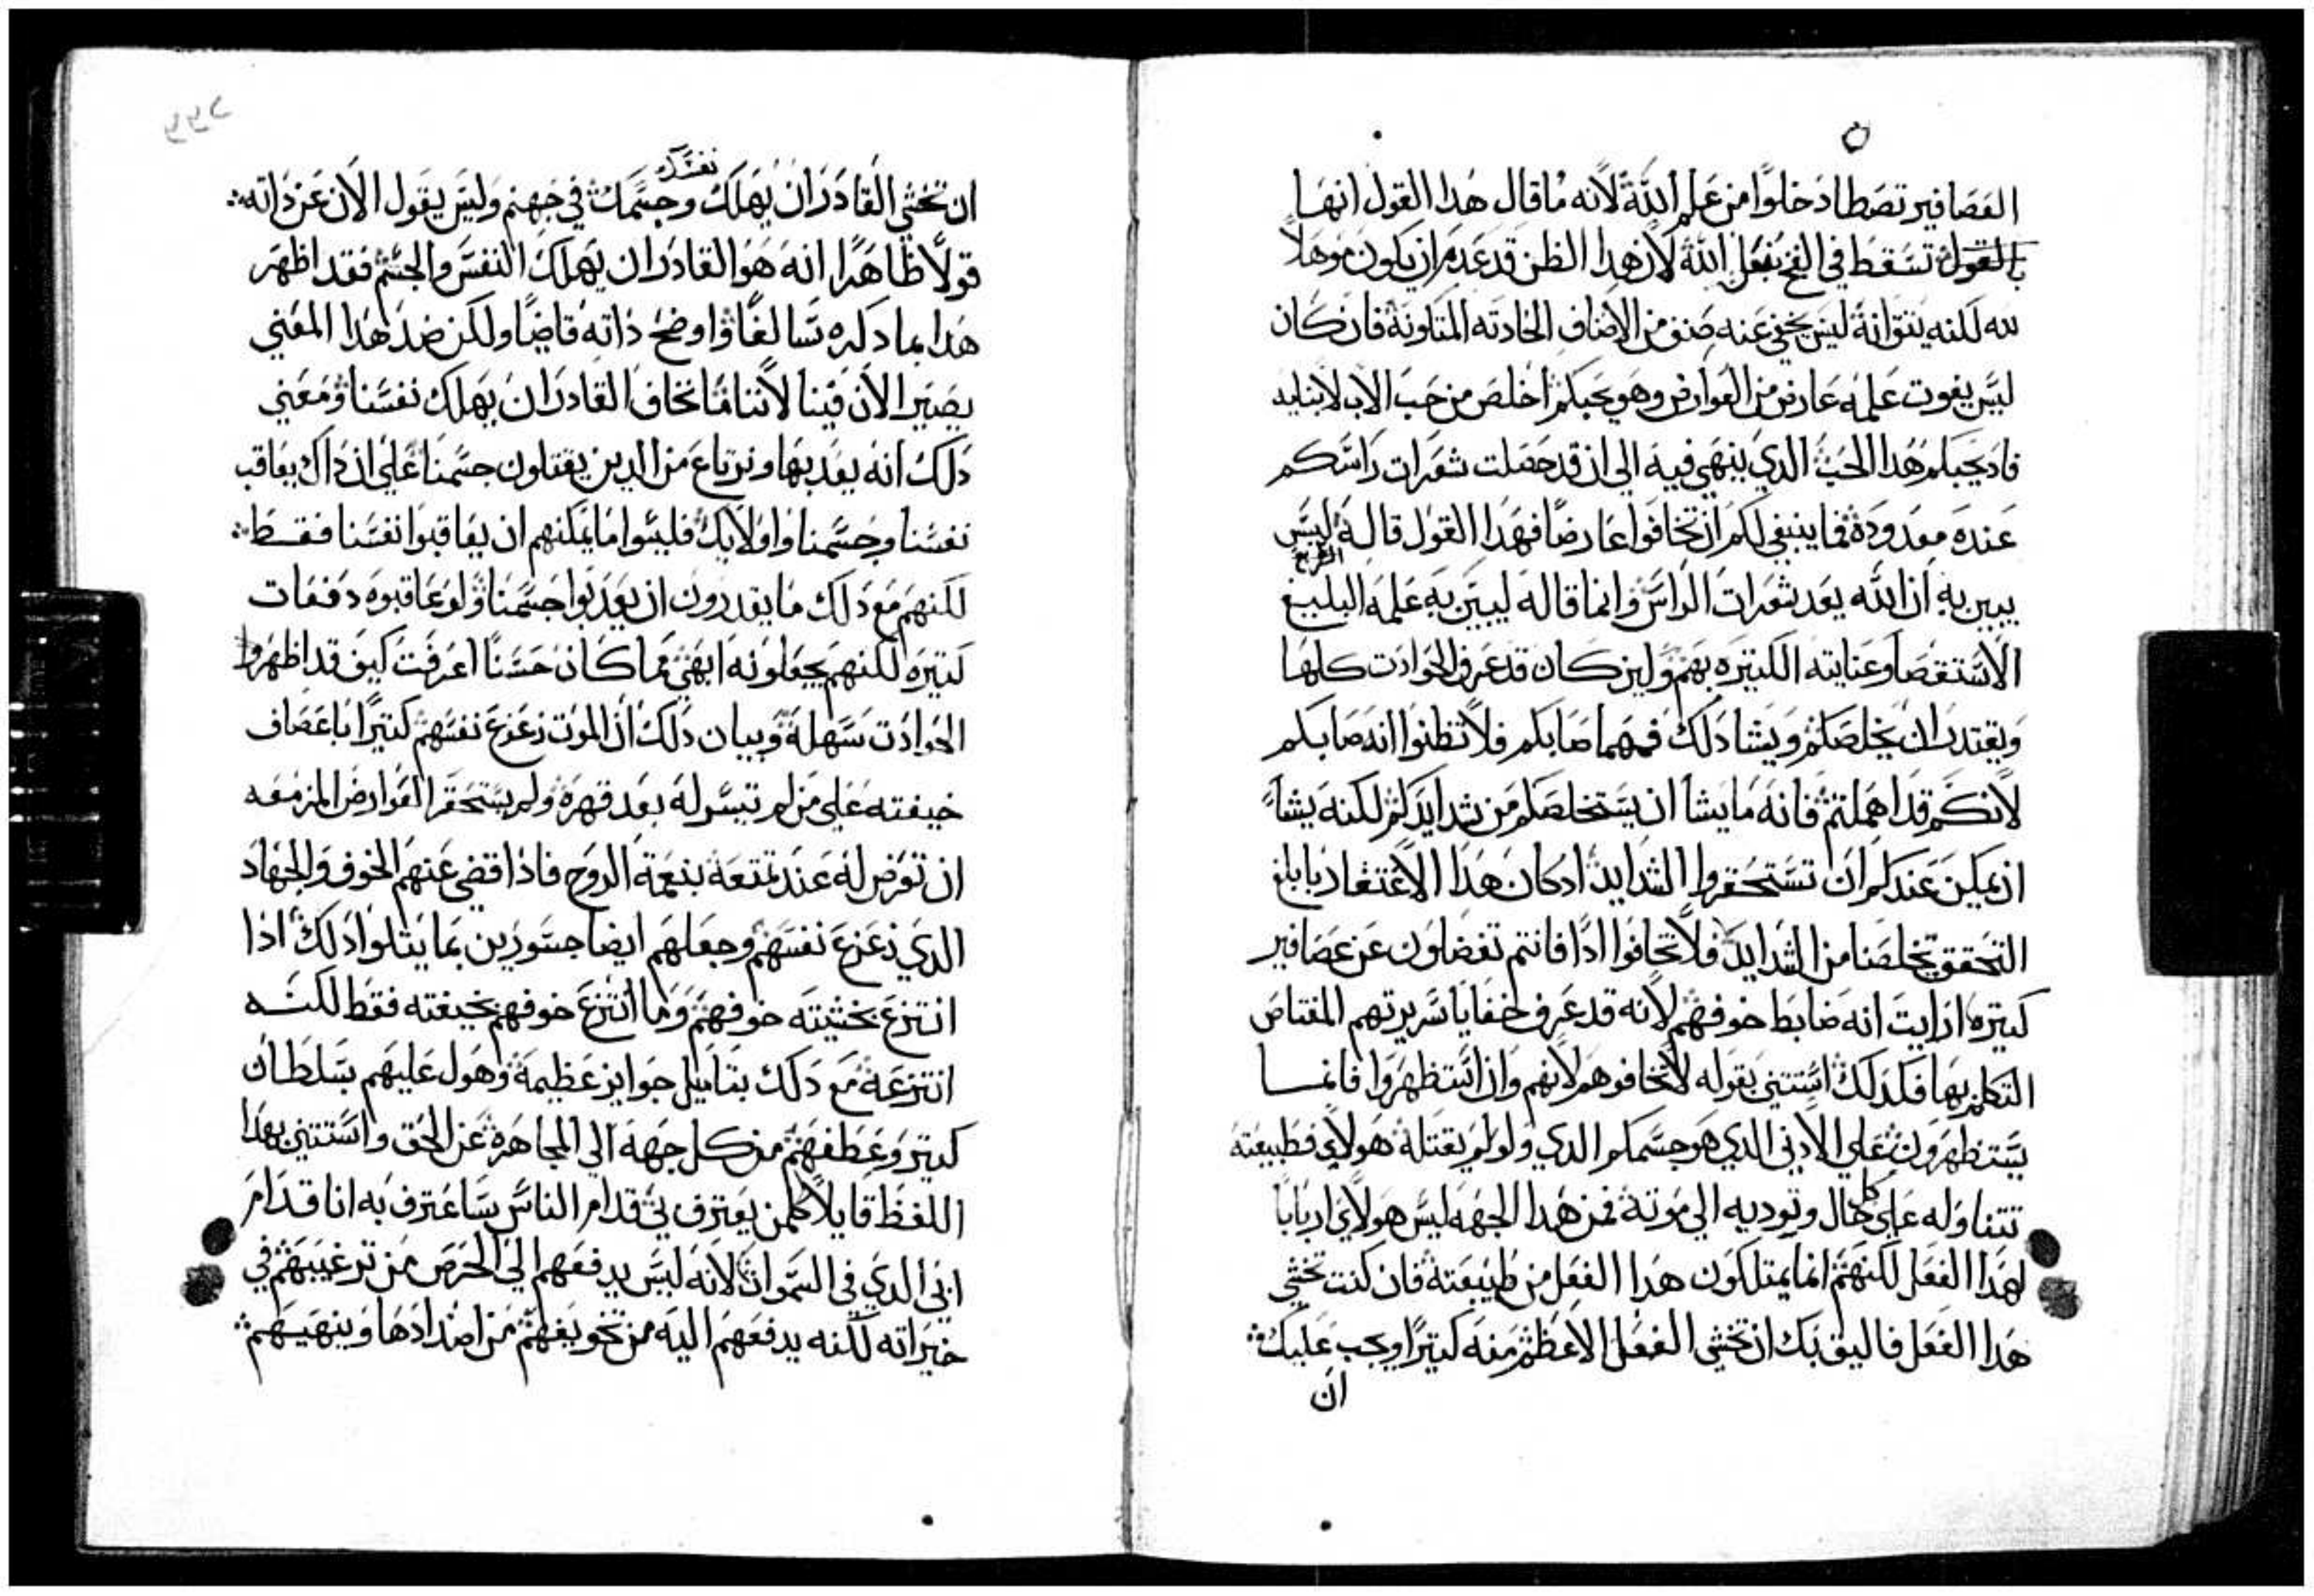 العصافير تصطاد خلوًا من علم الله لانه ما قال هدا القول انها
بالقول تسقط في الفخ بفعل الله لان هدا الظن قد عدم ان يكون موهلاً
لله لكنه يتق انه ليس يخفي عنه صنف من الاصناف الحادته المتلونة فان كان
ليس يفوت علمه عارض من العوارض وهو يحبكم اخلص من حب الاب لابنايه
فاد يحبكم هدا الحب الدي ينهي فيه الي ان قد حصلت شعرات راسكم
عنده معدودة فما ينبغي لكم ان تخافوا عارضًا فهدا القول قاله ليس
يبين به ان الله يعد شعرات الراس وانما قاله ليبين به علمه البليغ
الاستقصا وعنايته الكتيره بهم ولين كان قد عرف الحوادت كلها
ويقتدر ان يخلصكم ويشا دلك فمهما صابكم فلا تظنوا انه صابكم
لانكم قد اهملتم فانه ما يشا ان يستخلصكم من شدايدكم لكنه يشاء
ان يمكن عندكم ان تستحقروا الشدايد ادكان هدا الاعتقاد بابلغ
التحقق تخلصنا من الشدايد فلا تخافوا ادًا فانتم تفضلون عن عصافير
كتيره ارايت انه ضابط خوفهم لانه قد عرف خفايا سريرتهم المعتاص
التكلم بها فكدلك استتني بقوله لا تخافوهم لانهم وان استظهروا فانما
يستظهرون علي الادني الدي هو جسمكم الدي ولو لم يقتله هولاي فطبيعته
تتناوله علي كل حال وتوديه الي موته فمن هدا الجهه ليس هولاي اربابًا
لهدا الفعل لكنهم انما يمتلكون هدا الفعل من طبيعته فان كنت تخشي
هدا الفعل فاليق بك ان تخشي الفعل الاعظم منه كتيرًا ويجب عليك
ان
نفسك
ان تخشي القادر ان يهلك وجسمك في جهنم وليس يقول الان عن داته
قولاً ظاهرًا انه هو القادر ان يهلك النفس والجسم فقد اظهر
هدا بما دكره سالفًا واوضح داته قاضيًا ولكن ضد هدا المعني
يصير الان فينا لاننا ما نخاف القادر ان يهلك نفسنا ومعني
دلك انه يعدبها ونرتاع من الدين يقتلون جسمنا علي ان داك يعاقب
نفسنا وجسمنا واولايك فليسوا ما يمكنهم ان يعاقبوا نفسنا فقط
لكنهم مع دلك ما يقدرون ان يعدبوا جسمنا ولو عاقبوه دفعات
كتيره لكنهم يجعلونه ابهي مما كان حسنًا اعرفت كيف قد اظهروا
الحوادت سهلة وبيان دلك ان الموت زعزع نفسهم كتيرًا باعصاف
خيفته علي من لم تيسر له بعد قهره ولم يستحقر العوارض المزمعه
ان تعرض له عند تمتعه بنعمة الروح فاذا قضي عنهم الخوف والجهاد
الدي زعزع نفسهم وجعلهم ايضا جسورين بما يتلوا دلك اذا
انتزع بخشيته خوفهم وما انتزع خوفهم بخيفته فقط لكنه
انتزعه مع دلك بتاميل جوايز عظيمة وهول عليهم بسلطان
كتير وعطفهم من كل جهه الي المجاهرة عن الحق واستتني بهدا
اللفظ قايلاً كلمن يعترف بي قدام الناس ساعترف به انا قدام
ابي الدي في السموات لانه ليس يدفعهم الي الحرص من ترغيبهم في
خيراته لكنه يدفعهم اليه من تخويفهم من اضدادها وينهيهم